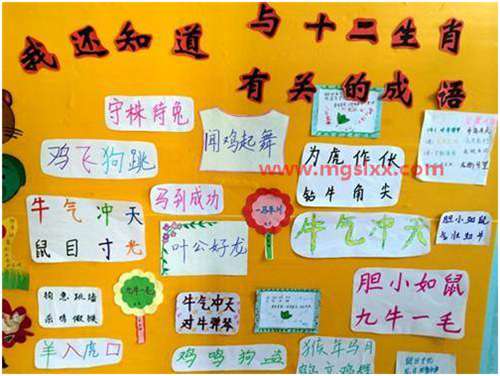 我还知道
与十二生肖
有关的成语
守株待兔
闻鸡起舞
鸡飞狗跳
为虎作伥
钻牛角尖
www.mgslxx.com
马到成功
牛气冲天
鼠目寸光
叶公好龙
一马当先
牛气冲天
胆小如鼠
狗急跳墙
杀鸡儆猴
九牛一毛
牛气冲天
对牛弹琴
胆小如鼠
九牛一毛
羊入虎口
鸡鸣狗盗
猴年马月